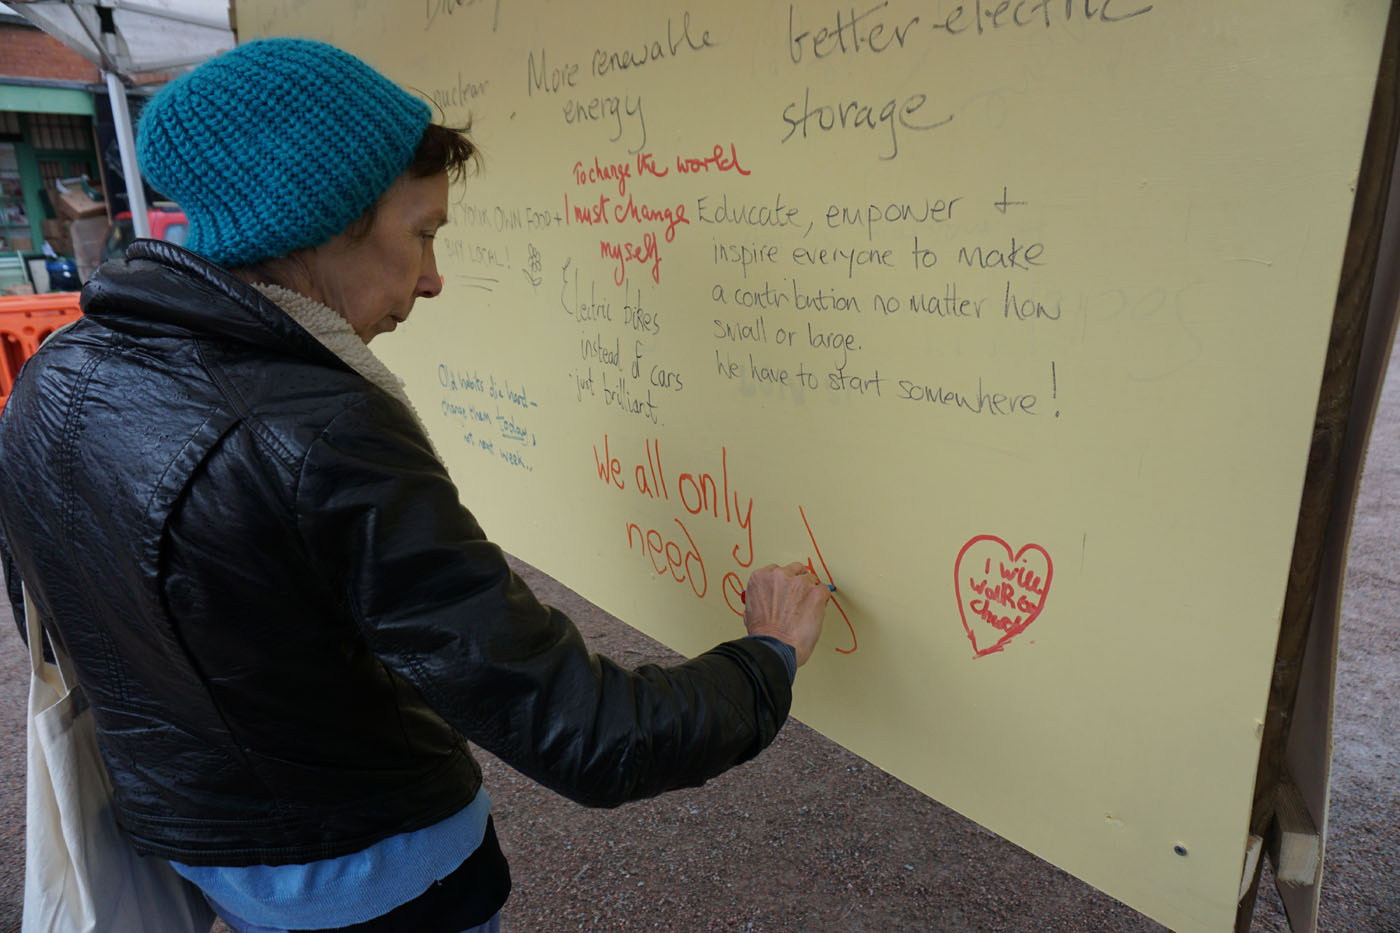 nuclear
More renewable
energy
better electric
storage
To change the world
I must change
myself
YOUR OWN FOOD +
BUY LOCAL!
Educate, empower +
inspire everyone to make
a contribution no matter how
small or large.
We have to start somewhere!
Electric bikes
instead of cars
just brilliant.
Old habits die hard -
change them today,
not next week..
We all only
need
I will
walk to
church